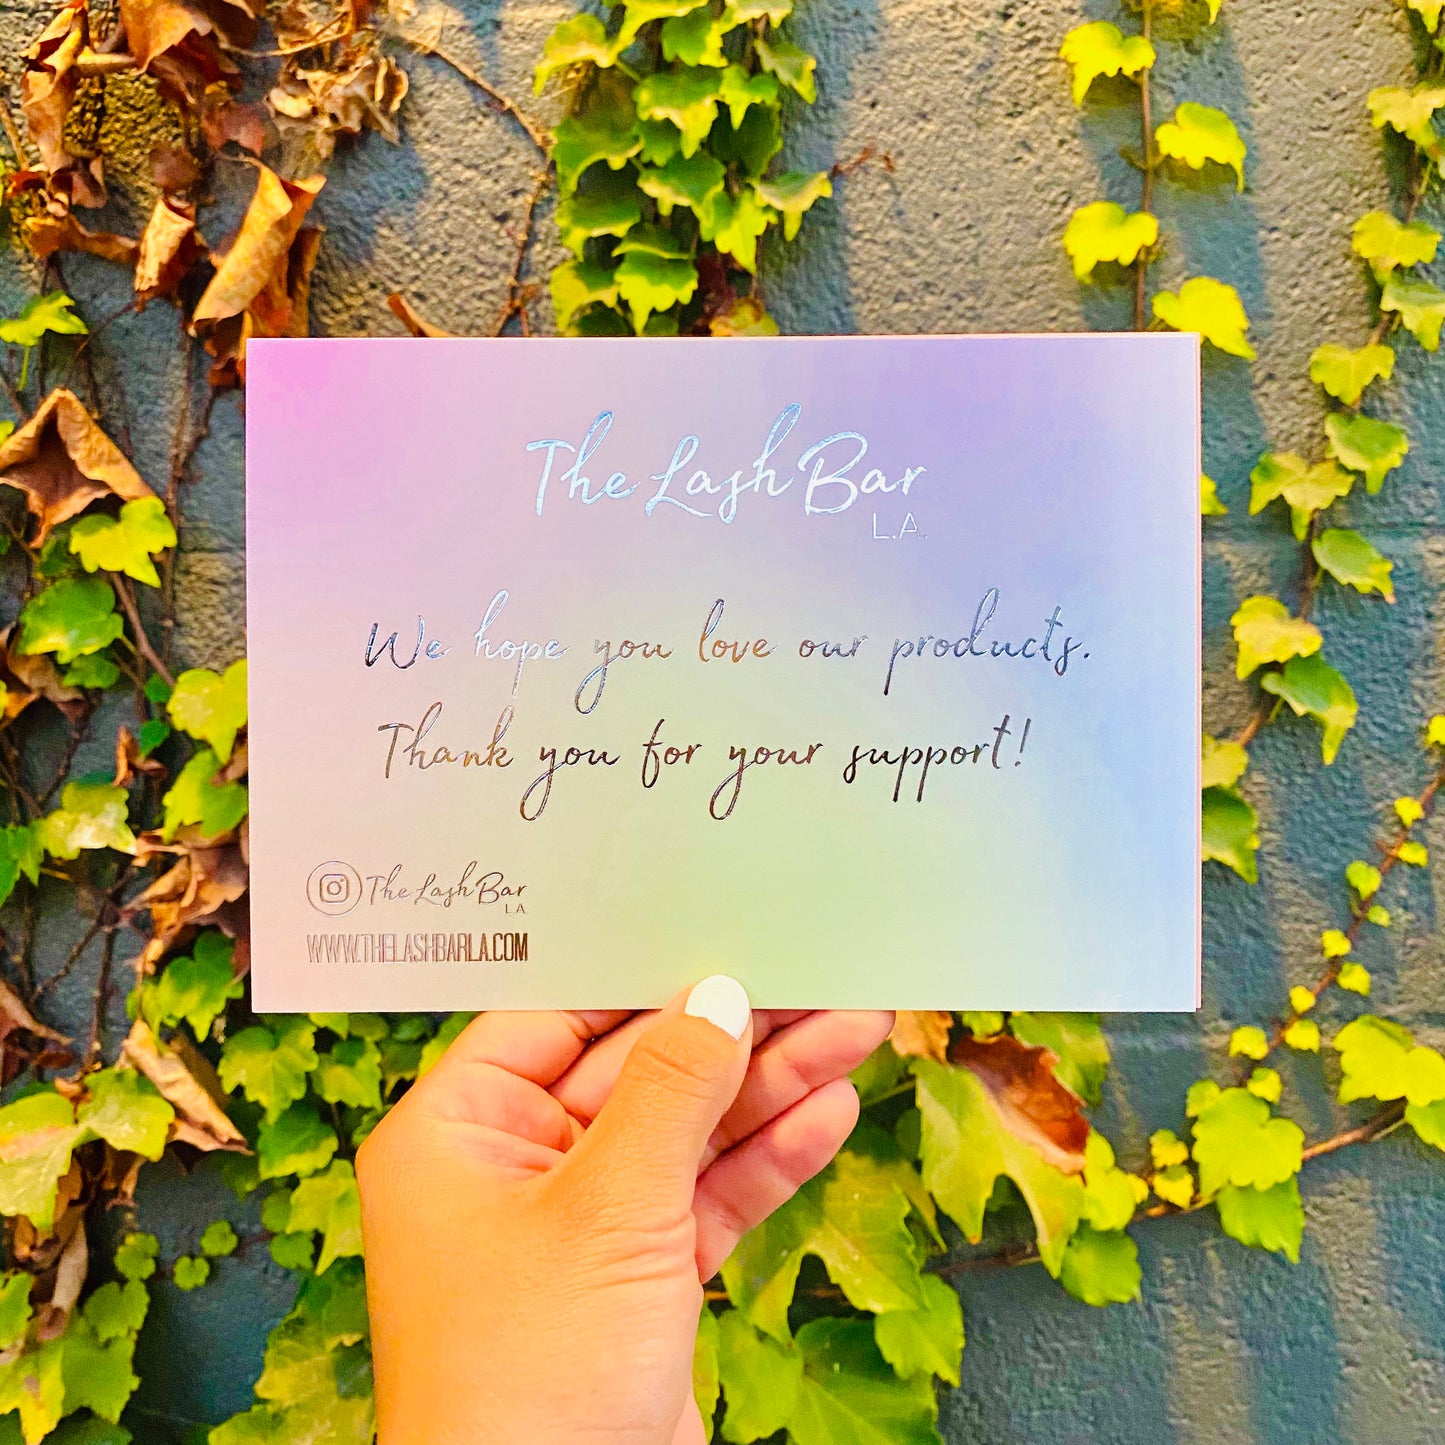 The Lash Bar
L.A.
We hope you love our products.
Thank you for your support!
The Lash Bar
L.A.
WWW.THELASHBARLA.COM